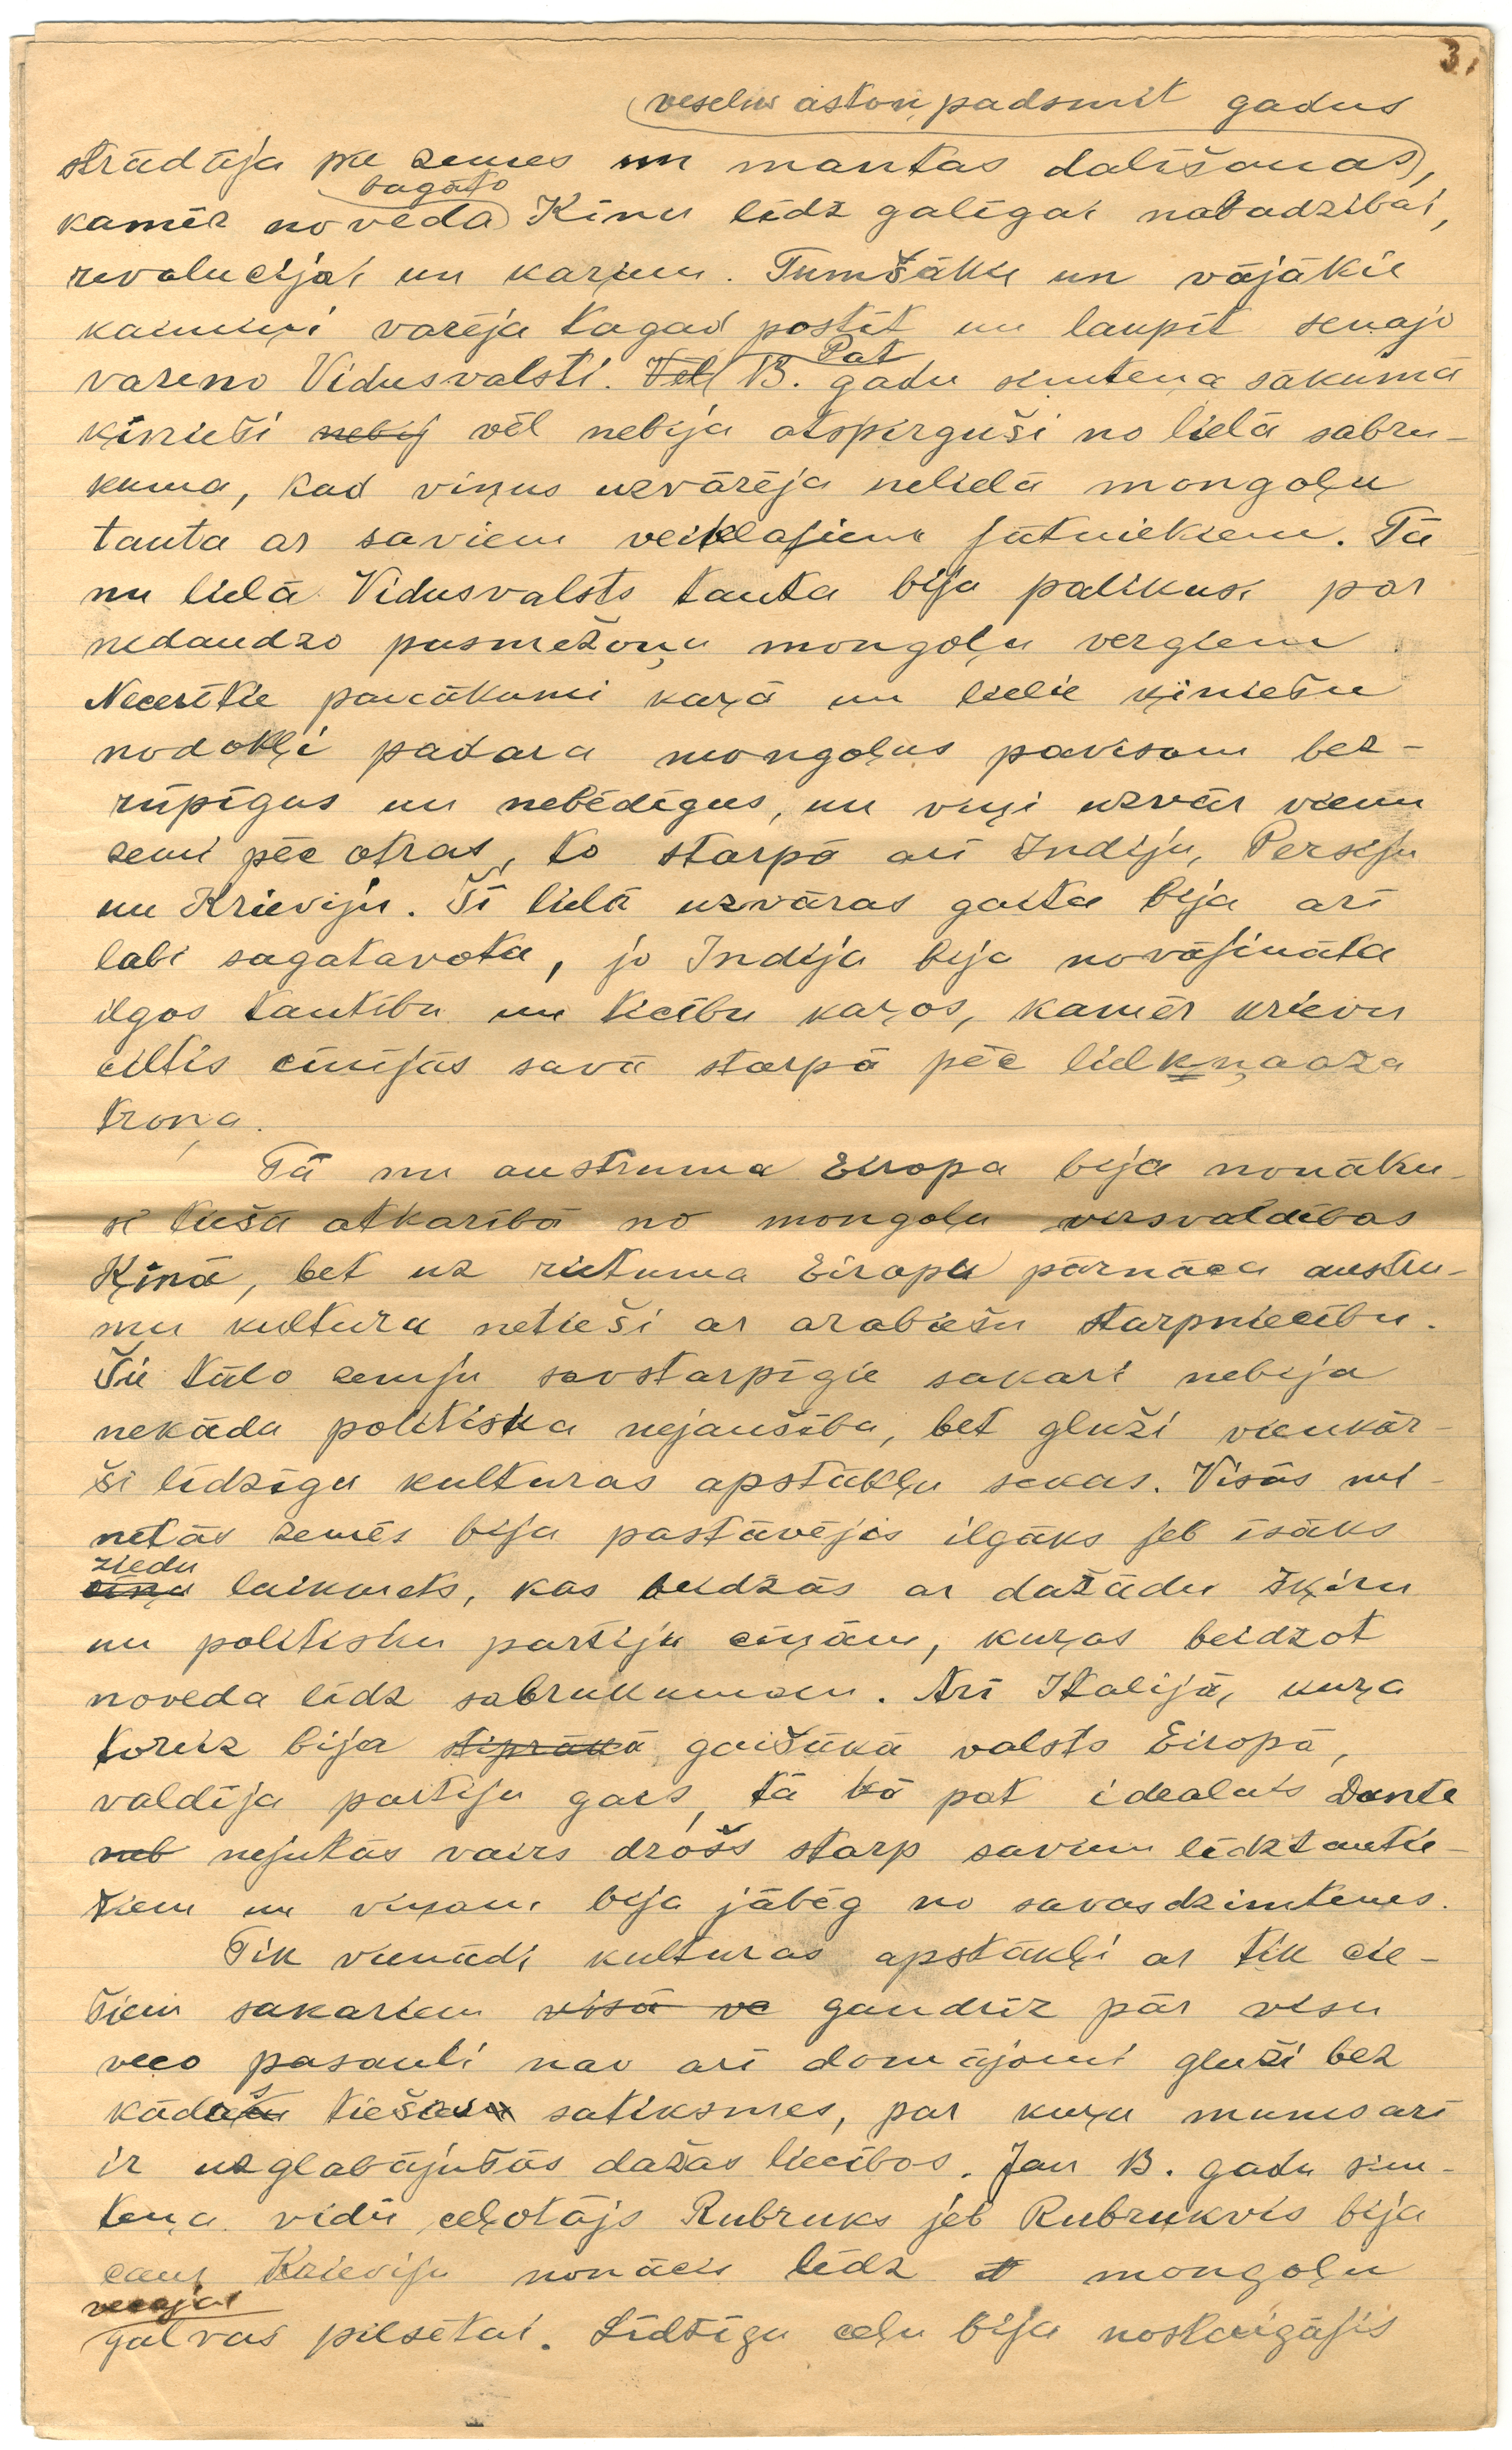 3.
veselus astoņpadsmit gadus
strādāja pie zemes un mantas dališanas,
bagāto
kamēr noveda Kinu līdz galīgai nabadzibai,
revolucijai un kariem. Tumšākie un vājākie
kaimiņi varēja tagad postīt un laupīt senajo
Pat
vareno Vidusvalsti. Vēl 13. gadu simteņa sākumā
ķinieši nebij vēl nebija atspirguši no lielā sabru-
kuma, kad viņus uzvārēja nelielā mongoļu
tauta ar saviem veiklajiem jātniekiem. Tā
nu lielā Vidusvalsts tauta bija palikusi par
nedaudzo pusmežoņu mongoļu vergiem.
Necerētie panākumi kaŗā un lielie ķiniešu
nodokļi padara mongoļus pavisam bez-
rūpīgus un nebēdīgus, un viņi uzvār vienu
zemi pēc otras, to starpā arī Indiju, Persiju
un Krieviju. Šī lielā uzvāras gaita bija arī
labi sagatavota, jo Indija bija novājināta
ilgos tautību un ticību kaŗos, kamēr krievu
ciltis cīnījās savā starpā pēc lielkņaaza
troņa.
Tā nu austruma Eiropa bija nonāku-
si tiešā atkarībā no mongoļu virsvaldības
Ķīnā, bet uz rietuma Eiropu pārnāca austru-
mu kultura netieši ar arabiešu starpniecību.
Šie tālo zemju savstarpīgie sakari nebija
nekāda politiska nejaušība, bet gluži vienkār-
ši līdzīgu kulturas apstākļu sekas. Visās mi-
netās zemēs bija pastāvējis ilgāks jeb īsāks
ziedu
cīņu laikmets, kas beidzās ar dažādu šķiru
un politisku partiju cīņām, kuŗas beidzot
noveda līdz sabrukumam. Arī Italijā, kuŗa
toreiz bija stiprākā gaišākā valsts Eiropā,
valdīja partiju gars, tā kā pat idealais Dante
neb nejutās vairs drošs starp saviem līdztautie-
šiem un viņam bija jābēg no savas dzimtenes.
Tik vienādi kulturas apstākļi ar tik cie-
šiem sakariem visā ve gandrīz pār visu
veco pasauli nav arī domājami gluži bez
kādas tiešas satiksmes, par kuŗu mums arī
ir uzglabājušās dažas liecības. Jau 13. gadu sim-
teņa vidū ceļotājs Rubruks jeb Rubrukvis bija
caur Krieviju nonācis līdz mongoļu
vecajai
galvas pilsētai. Līdzīgu ceļu bija nostaigājis